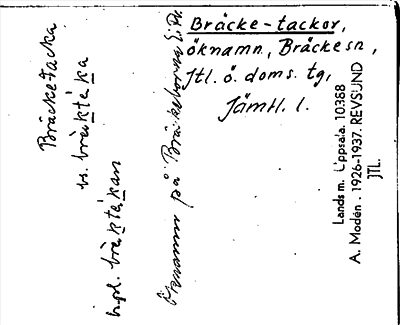 Bräcke-tackor,
öknamn, Bräcke sn,
Jtl. ö. doms. tg,
Jämtl. l.
Bräcketacka
vs. bräktáka
b.pl. bräktákan
Öknamn på Bräckeborna
Landsm. Uppsala. 10368
A. Modén. 1926-1937. REVSUND
JTL.